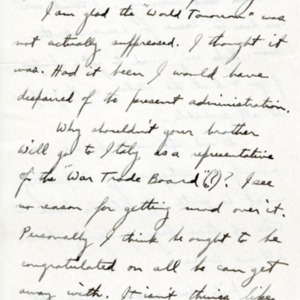 I am glad the "World Tomorrow" was
not actually suppressed. I thought it
was. Had it been I would have
despaired of the present administration.
Why shouldn't your brother
Will go to Italy as a representative
of the "War Trade Board"(?)? I see
no reason for getting mad over it.
Personally I think he ought to be
congratulated on all he can get
away with. It isn't things like